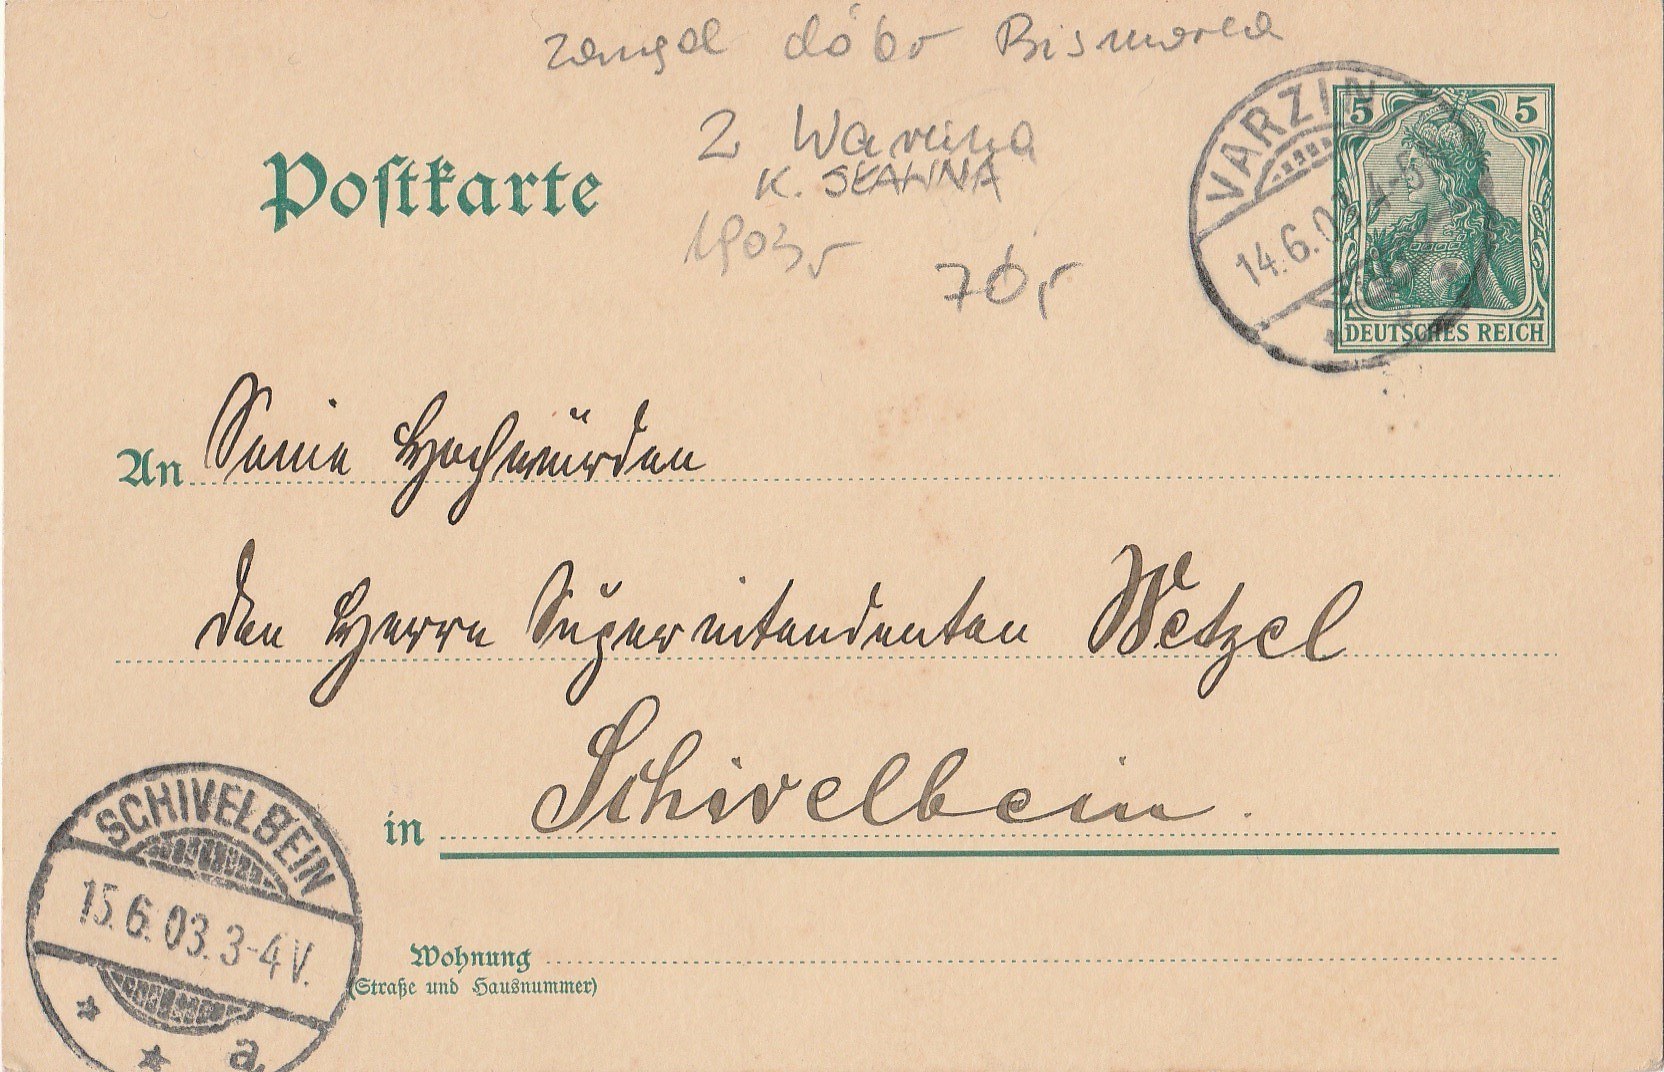 dóbr Bismarca
z Warcina
K. SŁAWNA
1903r
70,-
Postkarte
VARZIN
14.6.03. 4-5
5 5
DEUTSCHES REICH
An Seine Hochwürden
den Herrn Superintendenten Wetzel
in Schivelbein.
SCHIVELBEIN
15.6.03.3-4V.
* * a.
Wohnung
(Straße und Hausnummer)